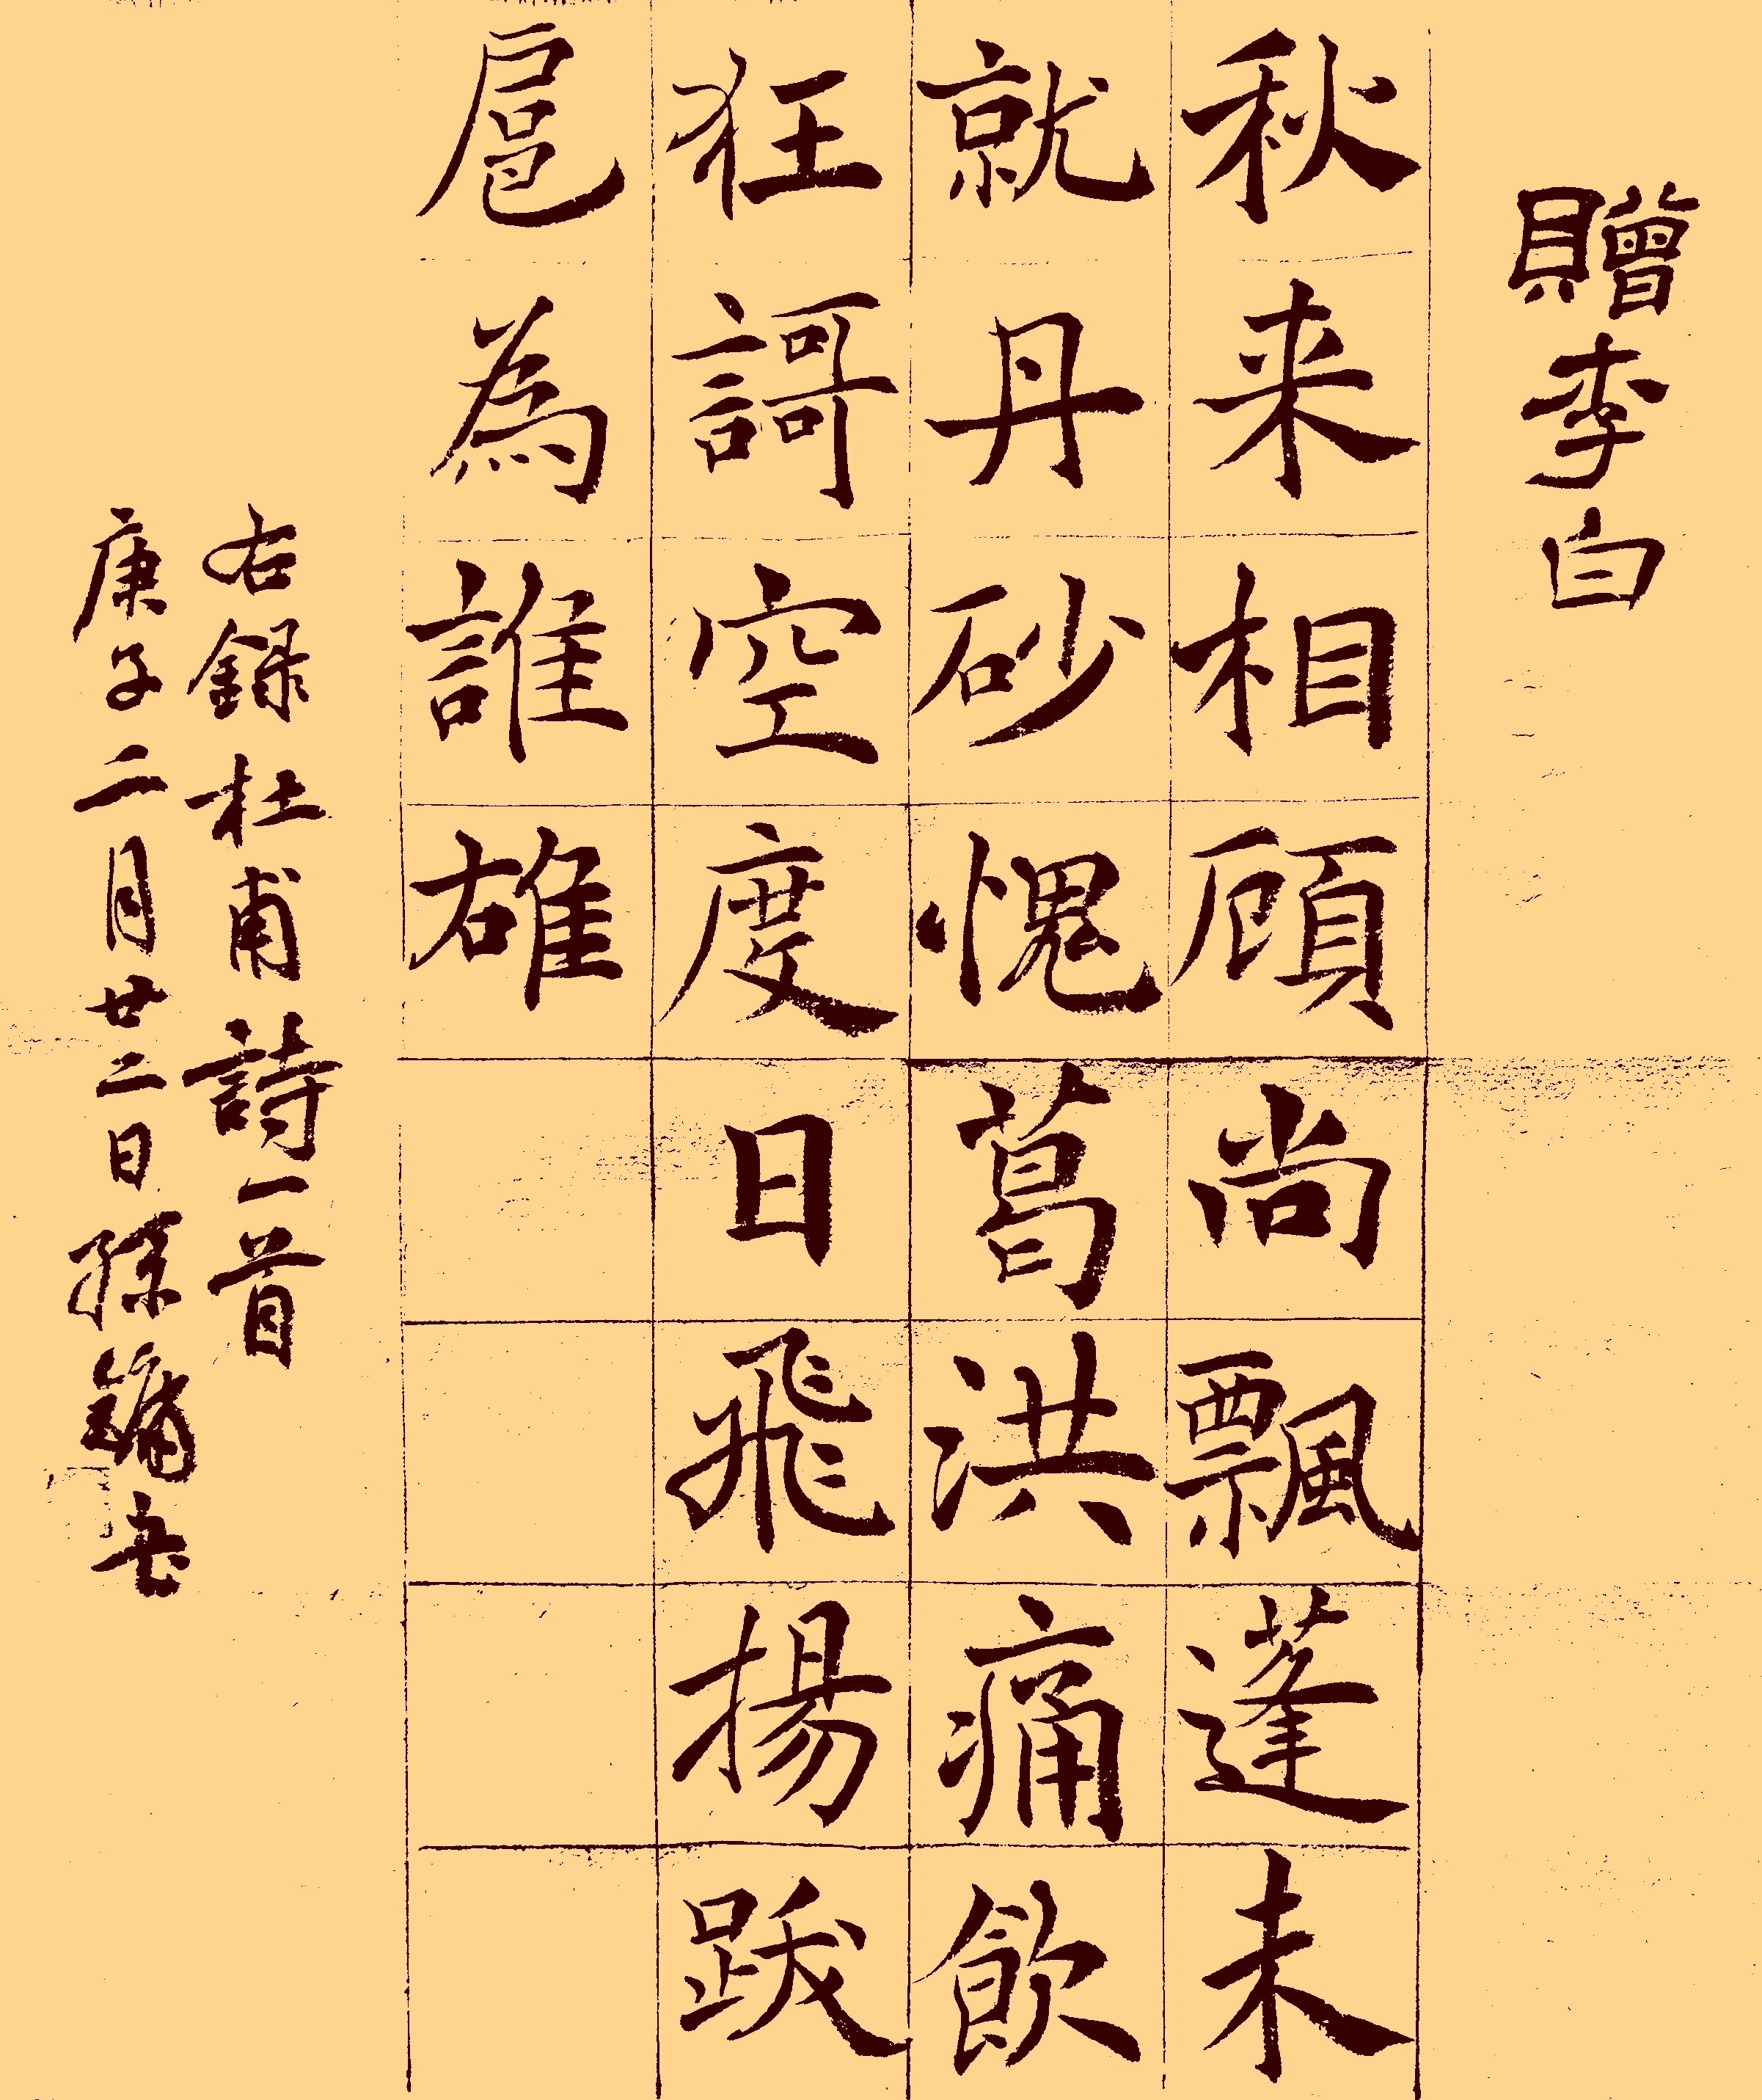 贈李白
秋来相顧尚飄蓬未
就丹砂愧葛洪痛飲
狂謌空度日飛揚跋
扈為誰雄
右録杜甫詩一首
庚子二月廿二日孫鏞書